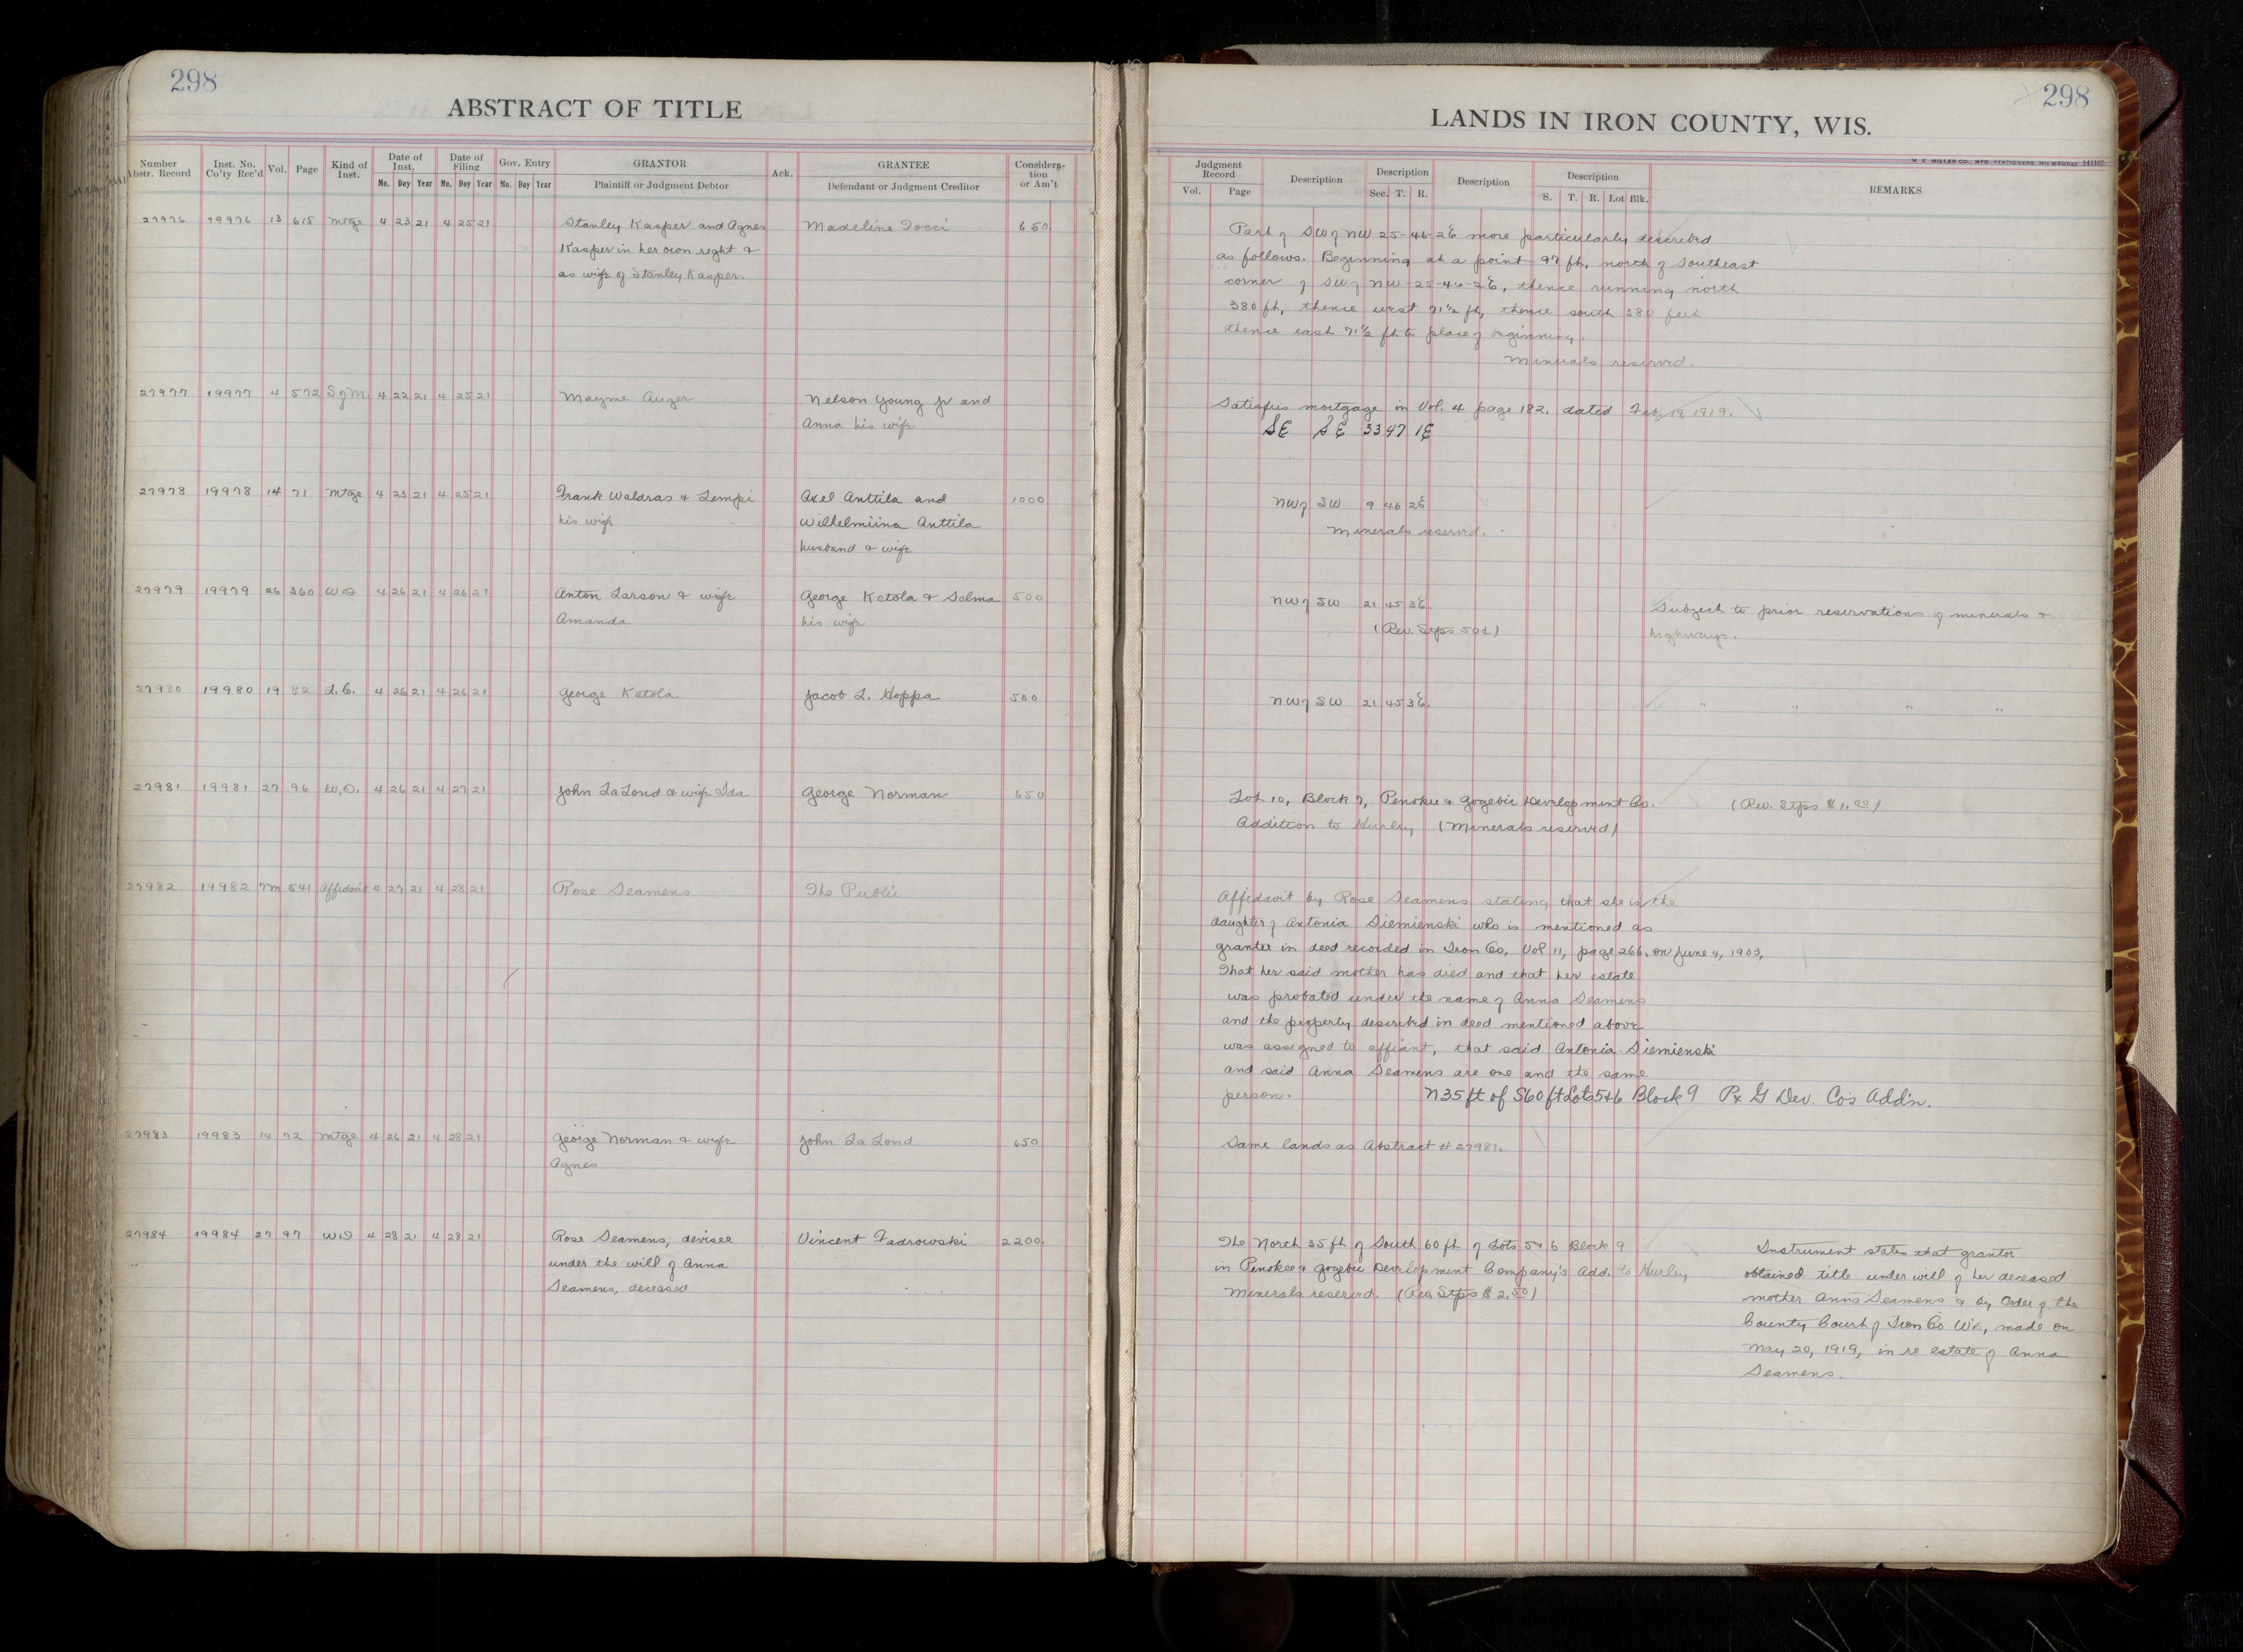 298
ABSTRACT OF TITLE
Number Abstr. Record
Inst. No. Co'ty Rec'd
Vol.
Page
Kind of Inst.
Date of Inst.
Mo. Day Year
Date of Filing
Mo. Day Year
Gov. Entry
Mo. Day Year
GRANTOR
Plaintiff or Judgment Debtor
Ack.
GRANTEE
Defendant or Judgment Creditor
Considera-
tion
or Am't
27976 19976 13 615 Mtge 4 23 21 4 25 21 Stanley Kasper and Agnes Madeline Tocci 650
Kasper in her own right &
as wife of Stanley Kasper.
27977 19977 4 572 S of M. 4 22 21 4 25 21 Mayme Auger Nelson Young Jr and
Anna his wife
27978 19978 14 71 Mtge 4 23 21 4 25 21 Frank Waldras & Lempi Axel Anttila and 1000
his wife Wilhelmiina Anttila
husband & wife
27979 19979 26 360 WD 4 26 21 4 26 21 Anton Larson & wife George Ketola & Selma 500
Amanda his wife
27980 19980 19 82 L.C. 4 26 21 4 26 21 George Ketola Jacob L. Hoppa 500
27981 19981 27 96 W.D. 4 26 21 4 27 21 John LaLond & wife Ida George Norman 650
27982 19982 7M 541 Affidavit 4 27 21 4 28 21 Rose Seamens The Public
27983 19983 14 72 Mtge 4 26 21 4 28 21 George Norman & wife John La Lond 650
Agnes
27984 19984 27 97 WD 4 28 21 4 28 21 Rose Seamens, devisee Vincent Fadrowski 2200
under the will of Anna
Seamens, deceased
298
LANDS IN IRON COUNTY, WIS.
H. C. MILLER CO., MFG. STATIONERS, MILWAUKEE 141167
Judgment Record
Vol. Page
Description
Description
Sec. T. R.
Description
Description
S. T. R. Lot Blk.
REMARKS
Part of SW of NW 25-46-2E more particularly described
as follows. Beginning at a point 97 ft. north of Southeast
corner of SW of NW-25-46-2E, thence running north
380 ft, thence west 71 1/2 ft, thence south 380 feet
thence east 71 1/2 ft to place of beginning.
Minerals reserved.
Satisfies mortgage in Vol. 4 page 182. dated Feb. 19, 1919.
SE SE 33 47 1E
NW of SW 9 46 2E
Minerals reserved.
NW of SW 21 45 3E. Subject to prior reservations of minerals &
(Rev. Stps 50¢) highways.
NW of SW 21 45 3E. " " " "
Lot 10, Block 7, Penokee & Gogebic Development Co. (Rev. Stps $1.00)
Addition to Hurley (Minerals reserved)
Affidavit by Rose Seamens stating that she is the
daughter of Antonia Siemienski who is mentioned as
grantee in deed recorded in Iron Co, Vol 11, page 266, on June 4, 1903,
That her said mother has died and that her estate
was probated under the name of Anna Seamens
and the property described in deed mentioned above
was assigned to affiant, that said Antonia Siemienski
and said Anna Seamens are one and the same
person. N 35 ft of S 60 ft Lots 5+6 Block 9 P & G Dev. Co's Add'n.
Same lands as Abstract # 27981.
The North 35 ft of South 60 ft of Lots 5 & 6 Block 9
in Penokee & Gogebic Development Company's Add. to Hurley
Minerals reserved. (Rev. Stps $2.50)
Instrument states that grantor
obtained title under will of her deceased
mother Anna Seamens & by Order of the
County Court of Iron Co Wis, made on
May 20, 1919, in re estate of Anna
Seamens.